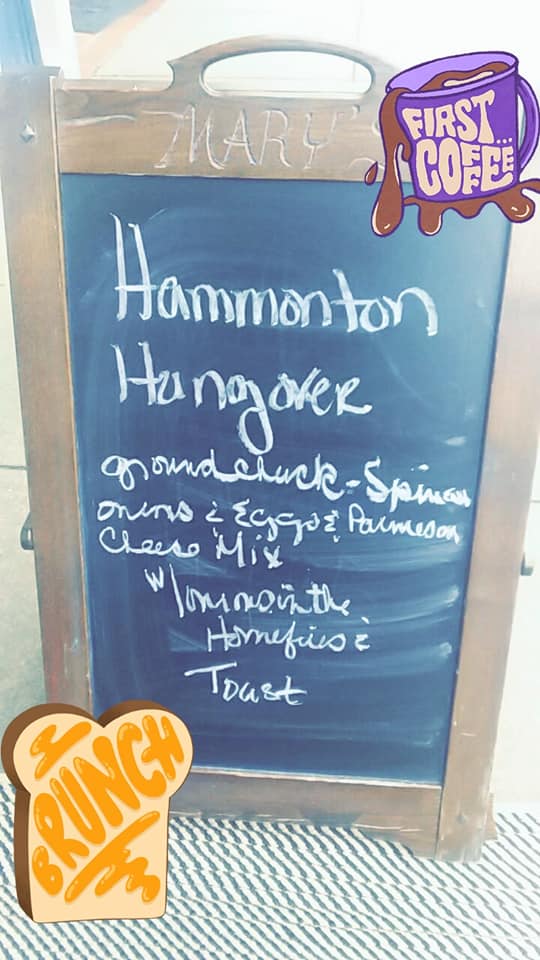 MARY'S
FIRST...
COFFEE
Hammonton
Hungover
groundchuck - Spinach
onins & Eggs & Parmeson
Cheese Mix
w/ onions in the
Homefries &
Toast
BRUNCH